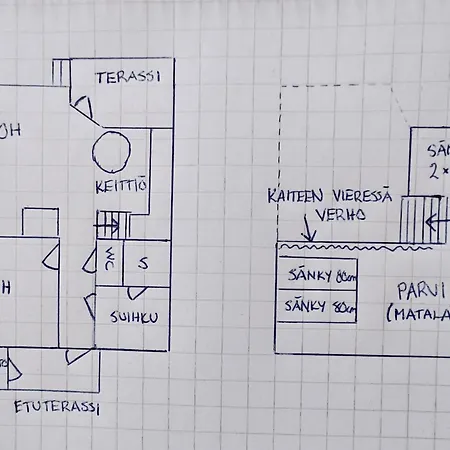 TERASSI
OH
KEITTIÖ
WC
S
H
SUIHKU
ETUTERASSI
KAITEEN VIERESSÄ
VERHO
SÄN
2×
SÄNKY 80cm
SÄNKY 80cm
PARVI
(MATALA